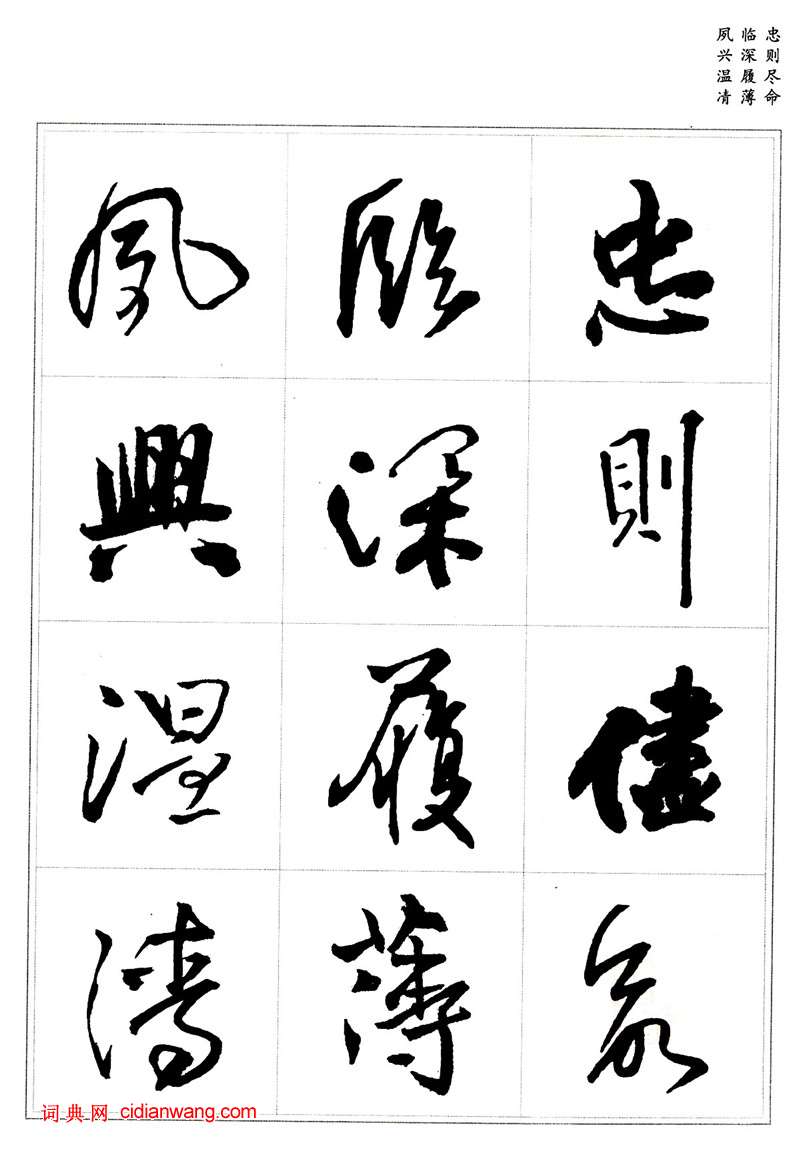 忠则尽命
临深履薄
夙兴温凊
忠則儘命
臨深履薄
夙興溫凊
词典网 cidianwang.com